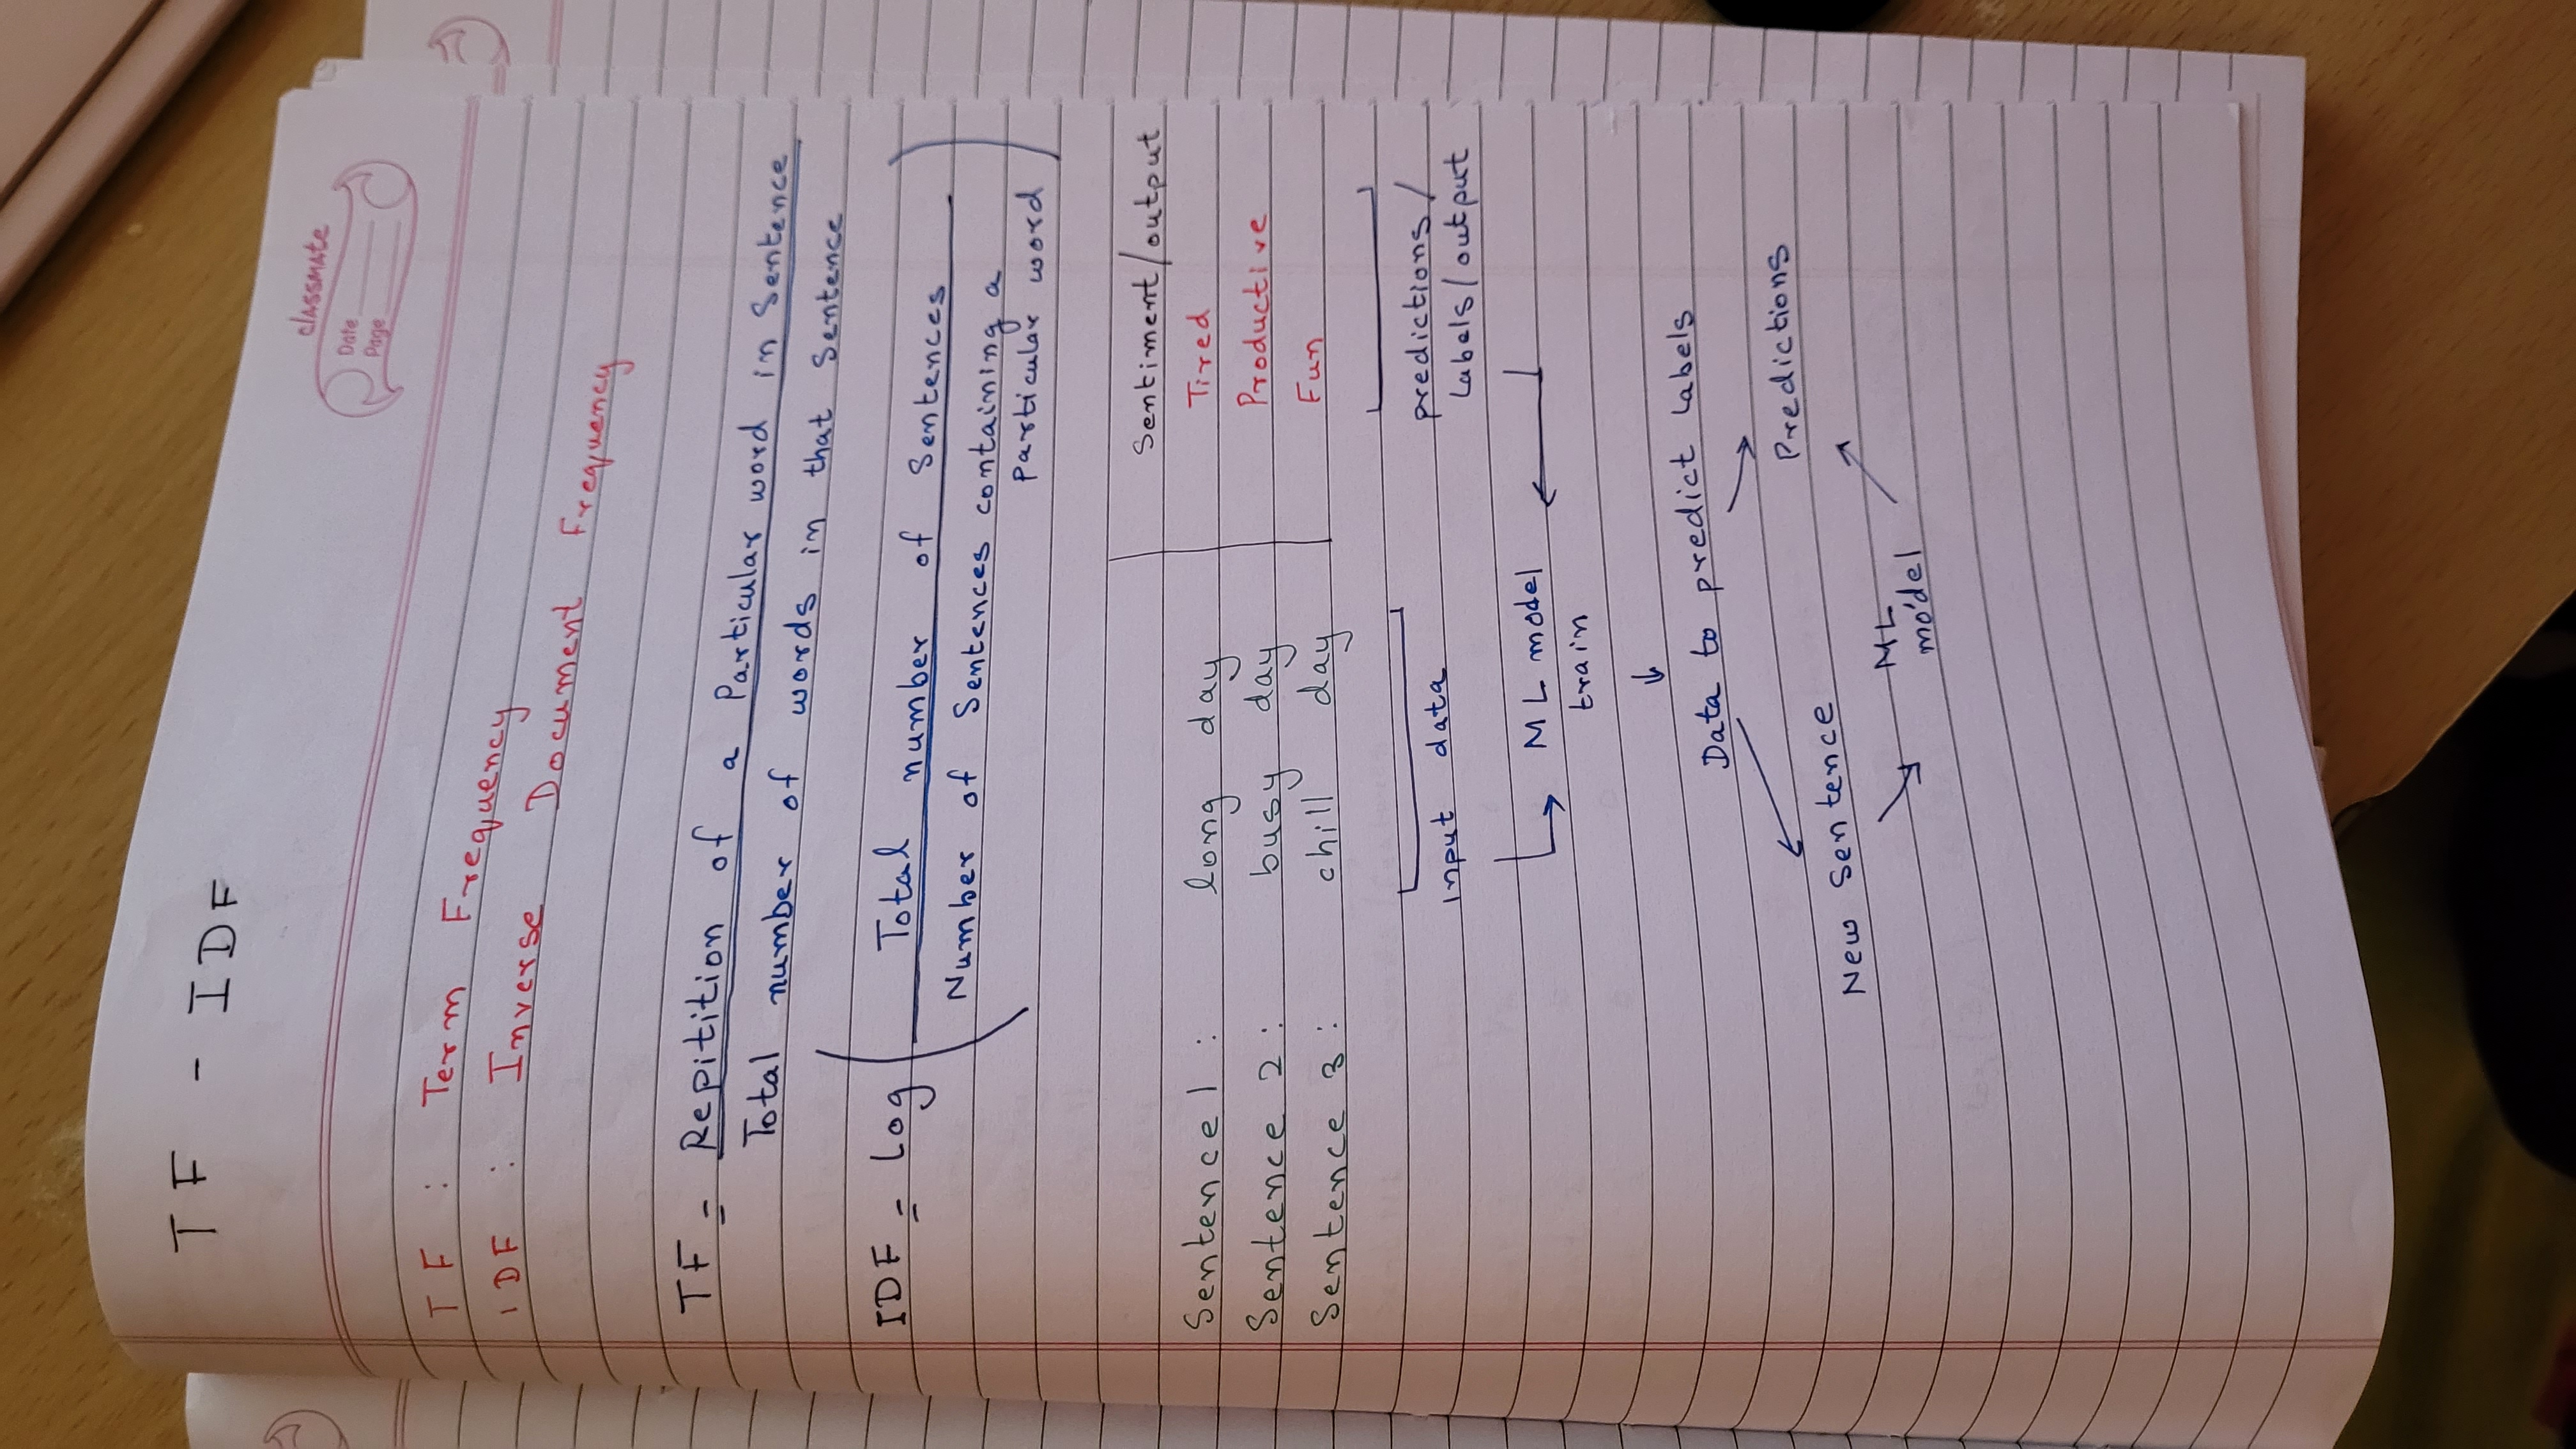 TF - IDF
classmate
Date
Page
TF : Term Frequency
IDF : Inverse Document Frequency
TF = Repitition of a Particular word in Sentence
Total number of words in that Sentence
IDF = Log ( Total number of Sentences
Number of Sentences containing a
particular word )
Sentiment/output
Sentence 1 : long day Tired
Sentence 2 : busy day Productive
Sentence 3 : chill day Fun
input data
predictions/
Labels/output
ML model
train
Data to predict Labels
Predictions
New Sentence
ML
model